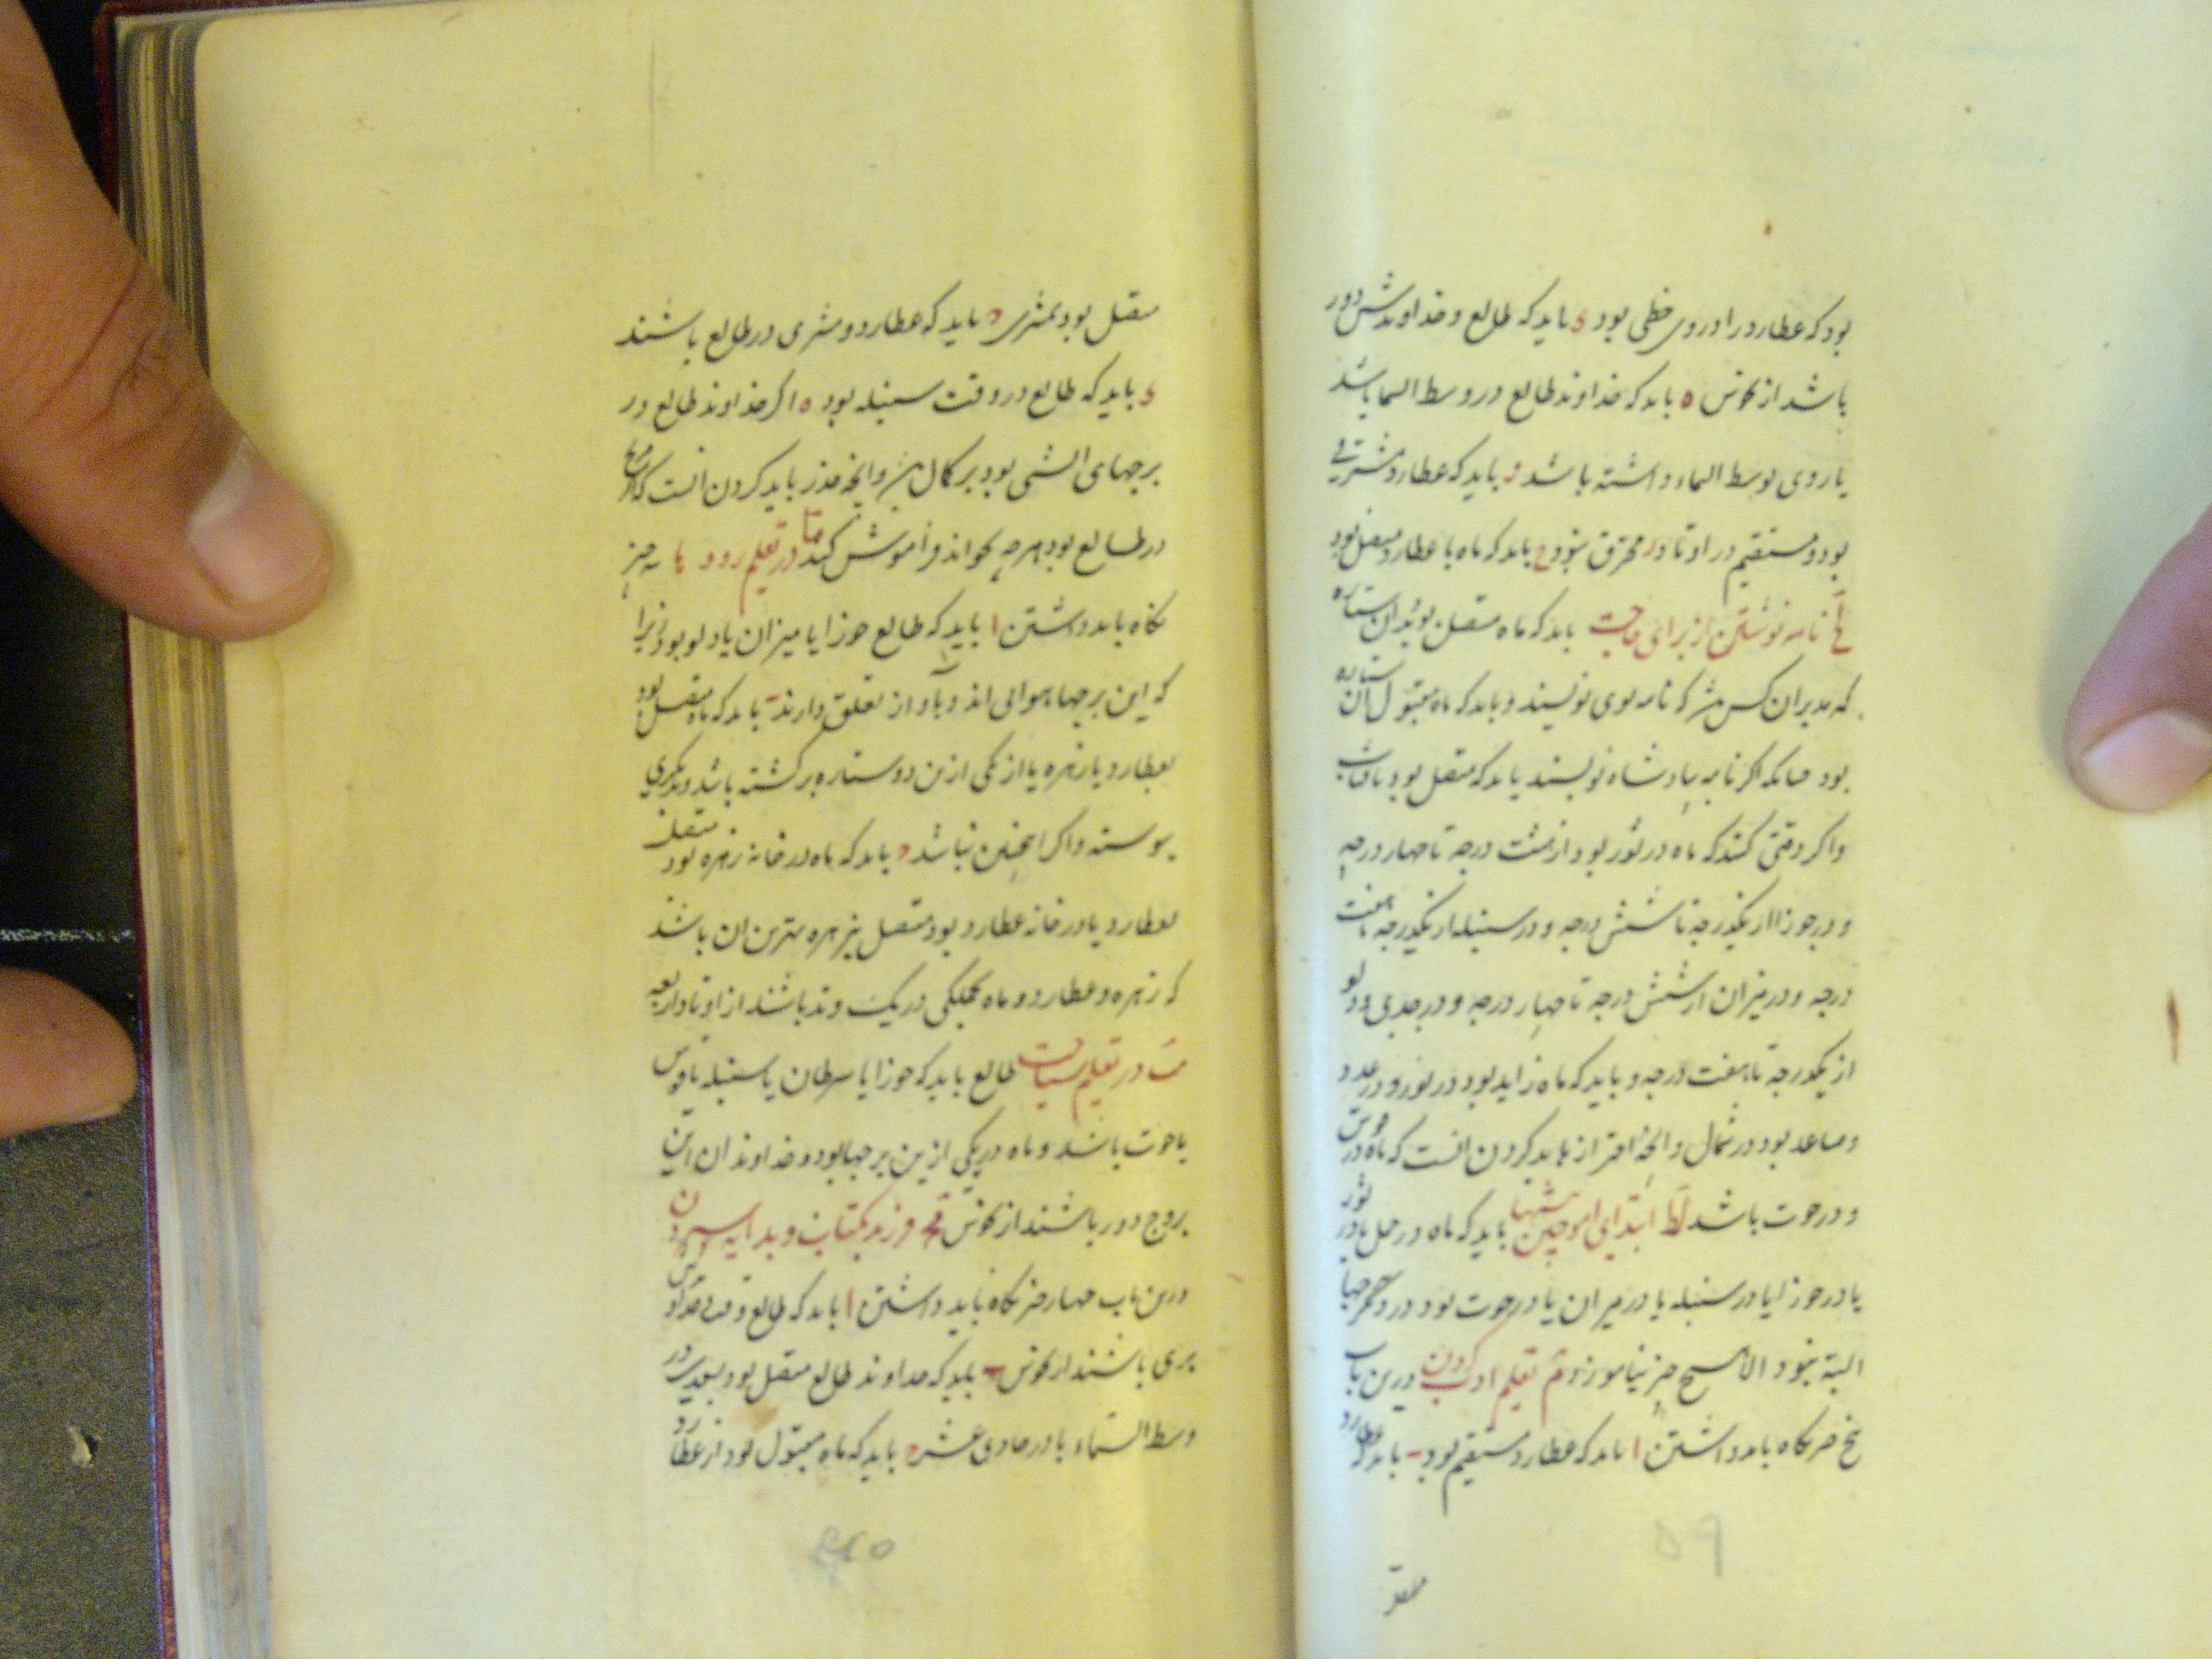 بود که عطارد را در وی حظی بود د باید که طالع و خداوندش دور
باشد از نحوس ه باید که خداوند طالع در وسط السما باشد
یا روی بوسط السماء داشته باشد و باید که عطارد مشرقی
بود و مستقیم در اوتاد ر محترق نبود ح باید که ماه با عطارد متصل بود
لح نامه نوشتن از برای حاجت باید که ماه متصل بود بدان ستاره
که مدبر ان کس بود که نامه بوی نویسند و باید که ماه مقبول ان ستاره
بود چنانکه اگر نامه بپادشاه نویسند باید که متصل بود بافتاب
واکر وقتی کنند که ماه در ثور بود از هشت درجه تا چهار درجه
و در جوزا از یکدرجه تا شش درجه و در سنبله از یکدرجه تا هفت
درجه و در میزان از شش درجه تا چهار درجه و در جدی و دلو
از یکدرجه تا هفت درجه و باید که ماه زاید بود در نور و در عدد
و صاعد بود در شمال و انچه احتراز باید کردن انست که ماه در قوس
و در حوت باشد لط ابتدای اموختن باید که ماه در حمل یا در ثور
یا در جوزا یا در سنبله یا در میزان یا در حوت بود در دیگر برجها
البته نبود الا هیچ چیز نیاموزند م تعلیم ادب کردن درین باب
پنج چیز نکاه باید داشتن ا باید که عطارد مستقیم بود ب باید که عطارد
متصل
متصل بود بمشتری ج باید که عطارد و مشتری در طالع باشند
د باید که طالع در وقت سنبله بود ه اکر خداوند طالع در
برجهای اتشی بود بر کمال بود و انچه حذر باید کردن انست که اکر مریخ
در طالع بود هرچه بخواند فراموش کند ما در تعلیم رود ها سه چیز
نکاه باید داشتن ا باید که طالع جوزا یا میزان یا دلو بود زیرا
که این برجها هوائی اند و باواز تعلق دارند ب باید که ماه متصل بود
بعطارد یا زهره یا از یکی ازین دو ستاره برکشته باشد و بدیگری
پیوسته و اکر اینچنین نباشد ج باید که ماه در خانه زهره بود متصل
بعطارد یا در خانه عطارد بود متصل بزهره بهترین ان باشد
که زهره و عطارد و ماه بجملکی در یک وتد باشند از اوتاد اربعه
مب در تعلیم سباحت طالع باید که جوزا یا سرطان یا سنبله یا قوس
یا حوت باشد و ماه در یکی ازین برجها بود و خداوند ان این
بروج دور باشند از نحوس مج فرزند بکتاب و بدایه سپردن
درین باب چهار چیز نکاه باید داشتن ا باید که طالع وقت و خداوندش
بری باشند از نحوس ب باید که خداوند طالع متصل بود بسعدی در
وسط السماء یا در حادی عشر ج باید که ماه مقبول بود از عطارد